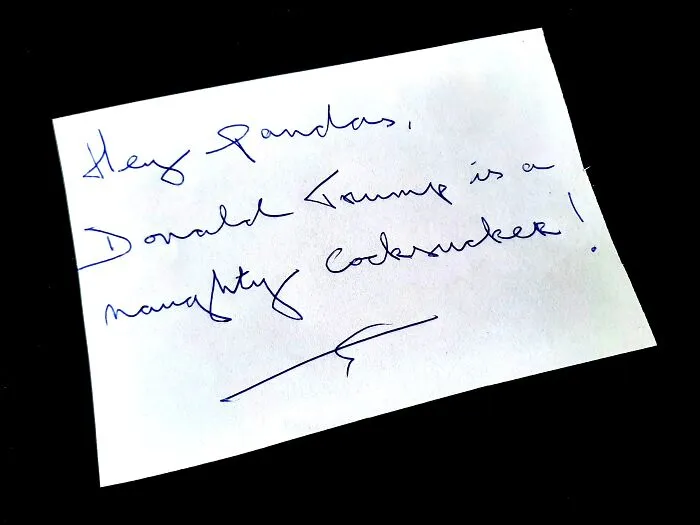 Hey Pandas,
Donald Trump is a
naughty cocksucker!